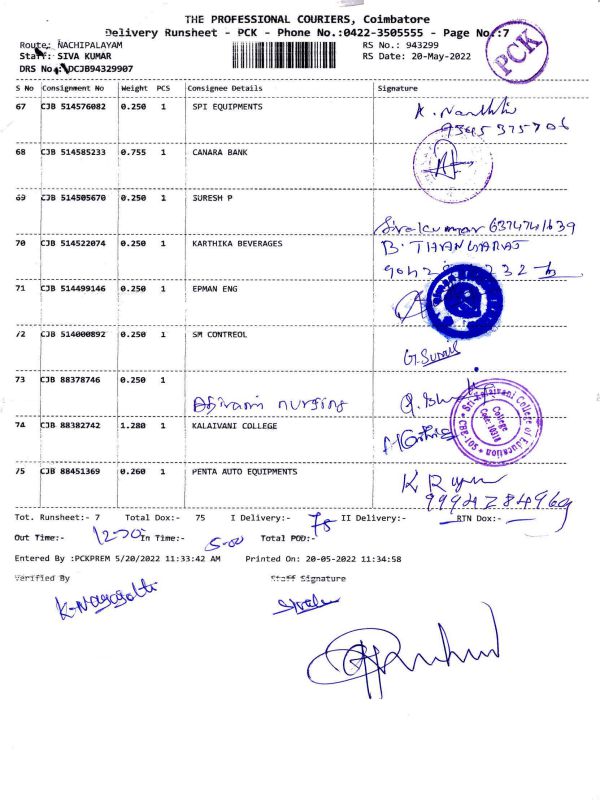 THE PROFESSIONAL COURIERS, Coimbatore
Delivery Runsheet - PCK - Phone No.:0422-3505555 - Page No.:7
Route: NACHIPALAYAM
RS No.: 943299
Staff: SIVA KUMAR
RS Date: 20-May-2022
DRS No.: DCJB94329907
PCK
S No Consignment No Weight PCS Consignee Details Signature
67 CJB 514576082 0.250 1 SPI EQUIPMENTS
68 CJB 514585233 0.755 1 CANARA BANK
69 CJB 514505670 0.250 1 SURESH P
Sivakumar
70 CJB 514522074 0.250 1 KARTHIKA BEVERAGES B. THANGARAJ
71 CJB 514499146 0.250 1 EPMAN ENG
72 CJB 514000892 0.250 1 SM CONTREOL
73 CJB 88378746 0.250 1
nursing
74 CJB 88382742 1.280 1 KALAIVANI COLLEGE
Sri Kalaivani College of Education
College
Code:10318
CBE-105
75 CJB 88451369 0.260 1 PENTA AUTO EQUIPMENTS
Tot. Runsheet:- 7 Total Dox:- 75 I Delivery:- 75 II Delivery:- RTN Dox:-
Out Time:- In Time:- 5-00 Total POD:-
Entered By :PCKPREM 5/20/2022 11:33:42 AM Printed On: 20-05-2022 11:34:58
Verified By Staff Signature